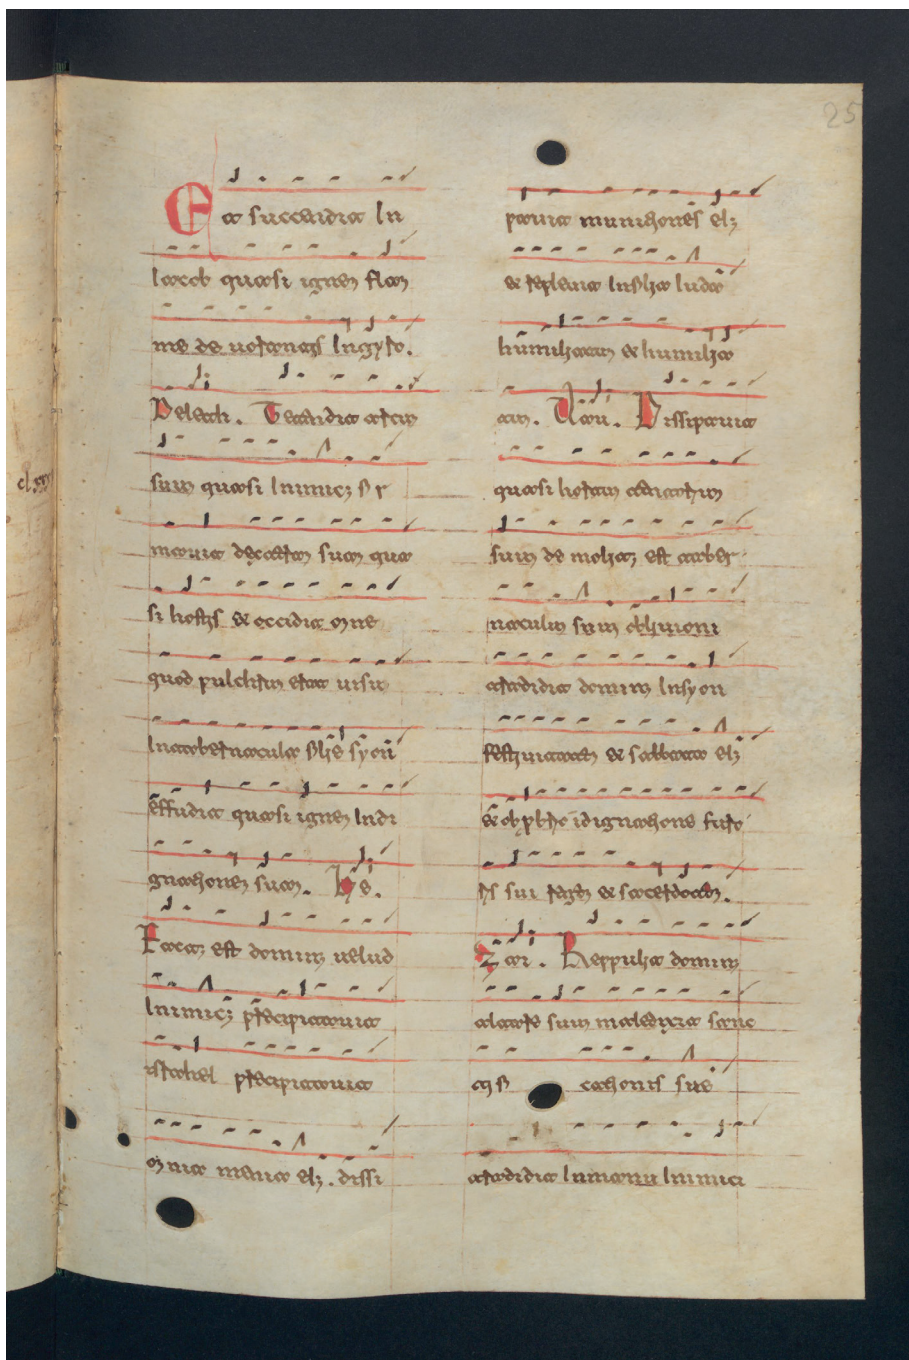 25
Et succendit In
Iacob quasi ignem flam
me de uorantis In gyro.
Deleth. Tetendit arcum
suum quasi Inimic; &
mauit dexteram suam qua
si hostis & occidit omne
quod pulchrum erat uisu
In tabernaculo syon
effudit quasi ignem Indi
gnationem suam. he.
Factus est dominus uelud
Inimic; precipitauit
israhel precipitauit
omnia menia ei;. dissi
pauit munitiones ei;
& repleuit In Iuda
humiliatum & humilia
tam. Uau. Dissipauit
quasi hortum tentorium
suum de molitus est taber
naculum suum obliuioni
tradidit dominus In syon
festiuitatem & sabbatum ei;
& obprobrio indignatione furo
ris sui regem & sacerdotem.
Zai. Reppulit dominus
altare suum maledixit sanc
cationis sue
tradidit In manu Inimici